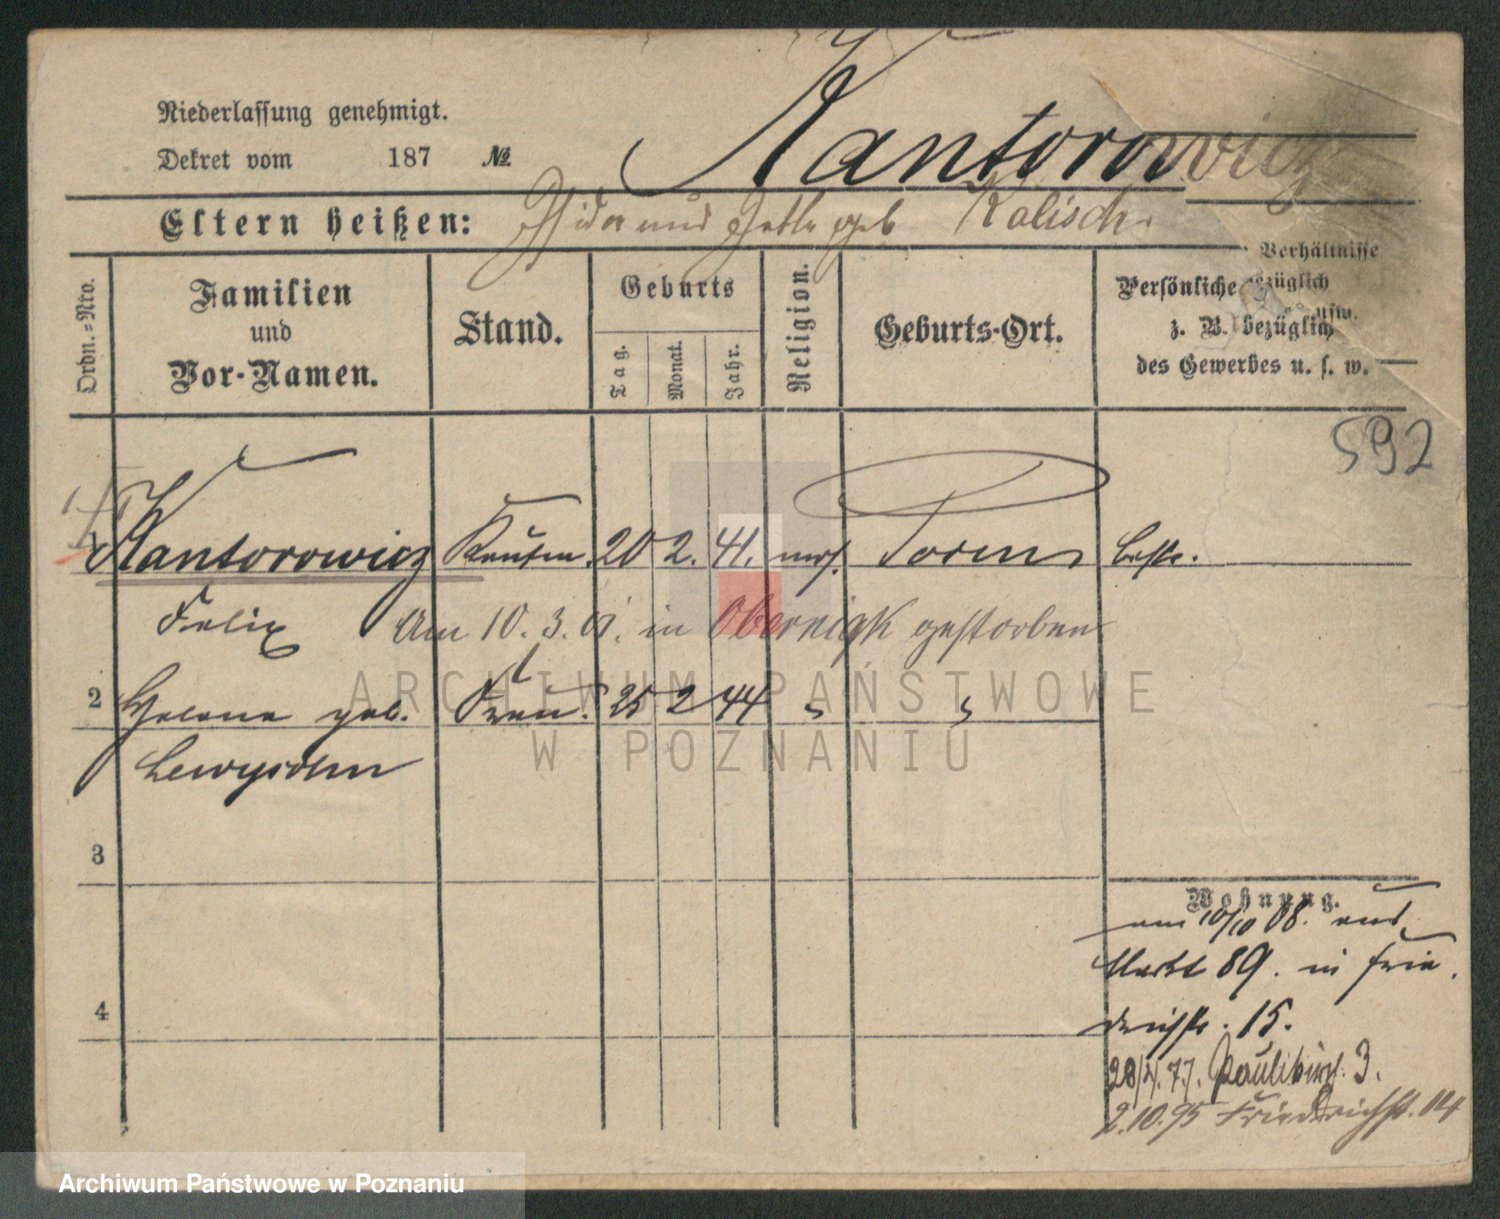 Niederlassung genehmigt.
Kantorowicz
Dekret vom 187 №
Eltern heißen: Isidor und Jette geb Kalisch.
Ordn.=Nro.
Familien
und
Vor-Namen.
Stand.
Geburts
Tag.
Monat.
Jahr.
Religion.
Geburts-Ort.
Verhältnisse
Persönliche bezüglich
z. B. bezüglich usw.
des Gewerbes u. s. w.
592
1 Kantorowicz Kaufm. 20 2. 41. mos. Posen
Felix Am 10. 3. in Obernigk gestorben
2 Helene geb. Frau. 25 2 44 " "
Lewysohn
3
4
Wohnung.
am 10/10 08. aus
Markt 89. in Frie
drichstr. 15.
28/4. 77. Paulikirch. 3.
2.10.95 Friedrichstr. 14
ARCHIWUM PAŃSTWOWE
W POZNANIU
Archiwum Państwowe w Poznaniu